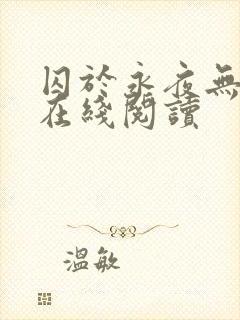 囚於永夜無
在綫閱讀
溫敏